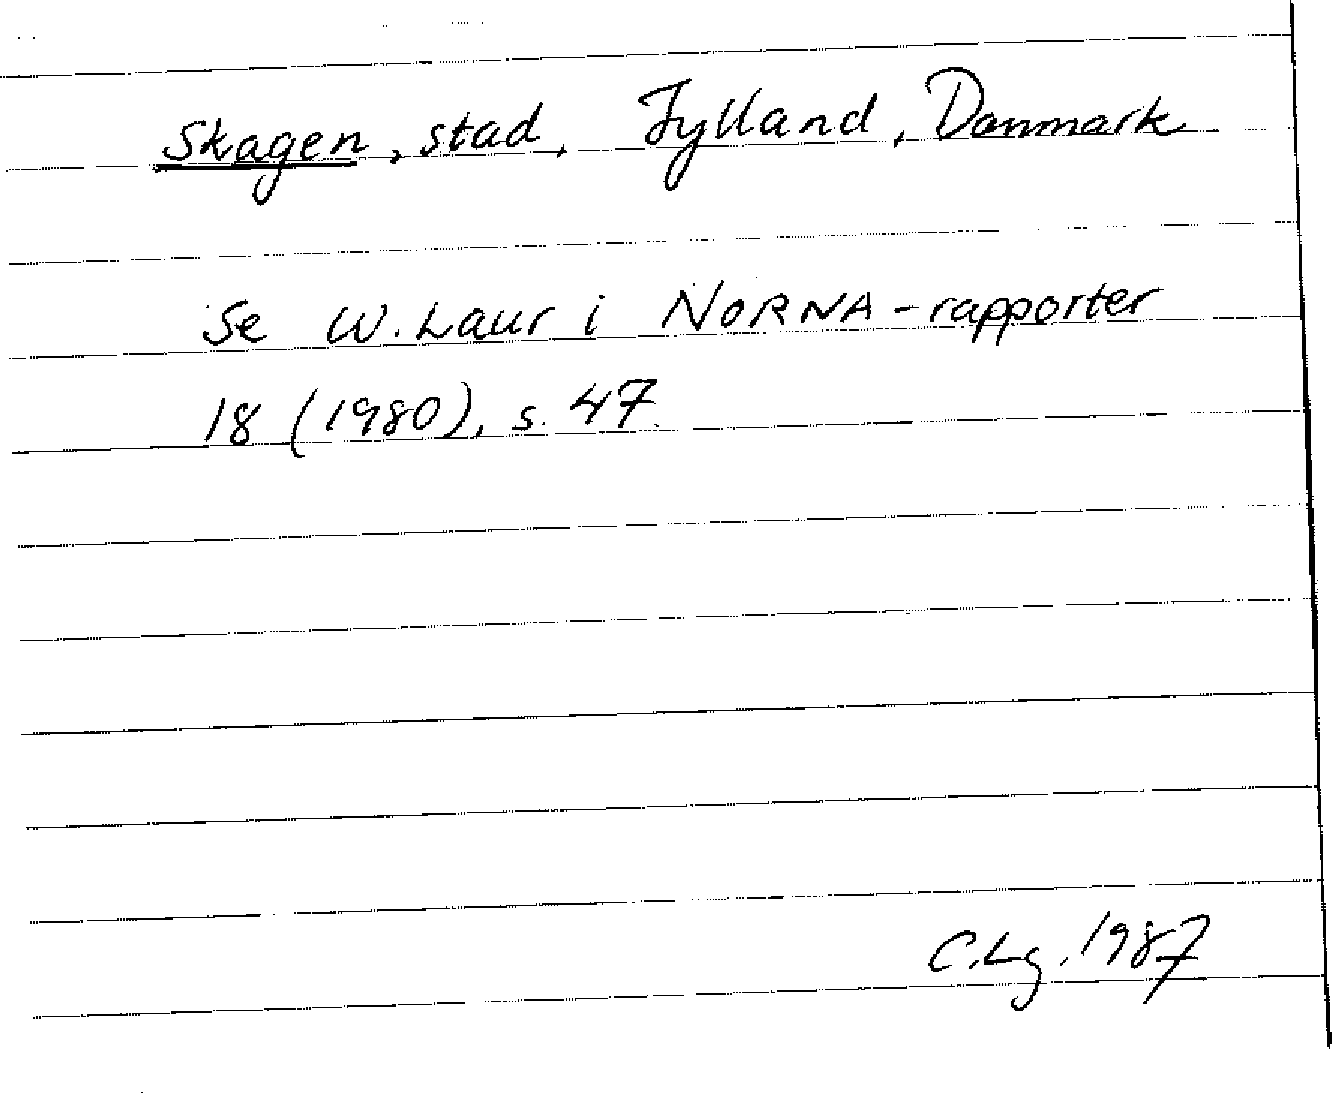 Skagen, stad, Jylland, Danmark
Se W. Laur i NORNA-rapporter
18 (1980), s. 47.
C.Lg. 1987